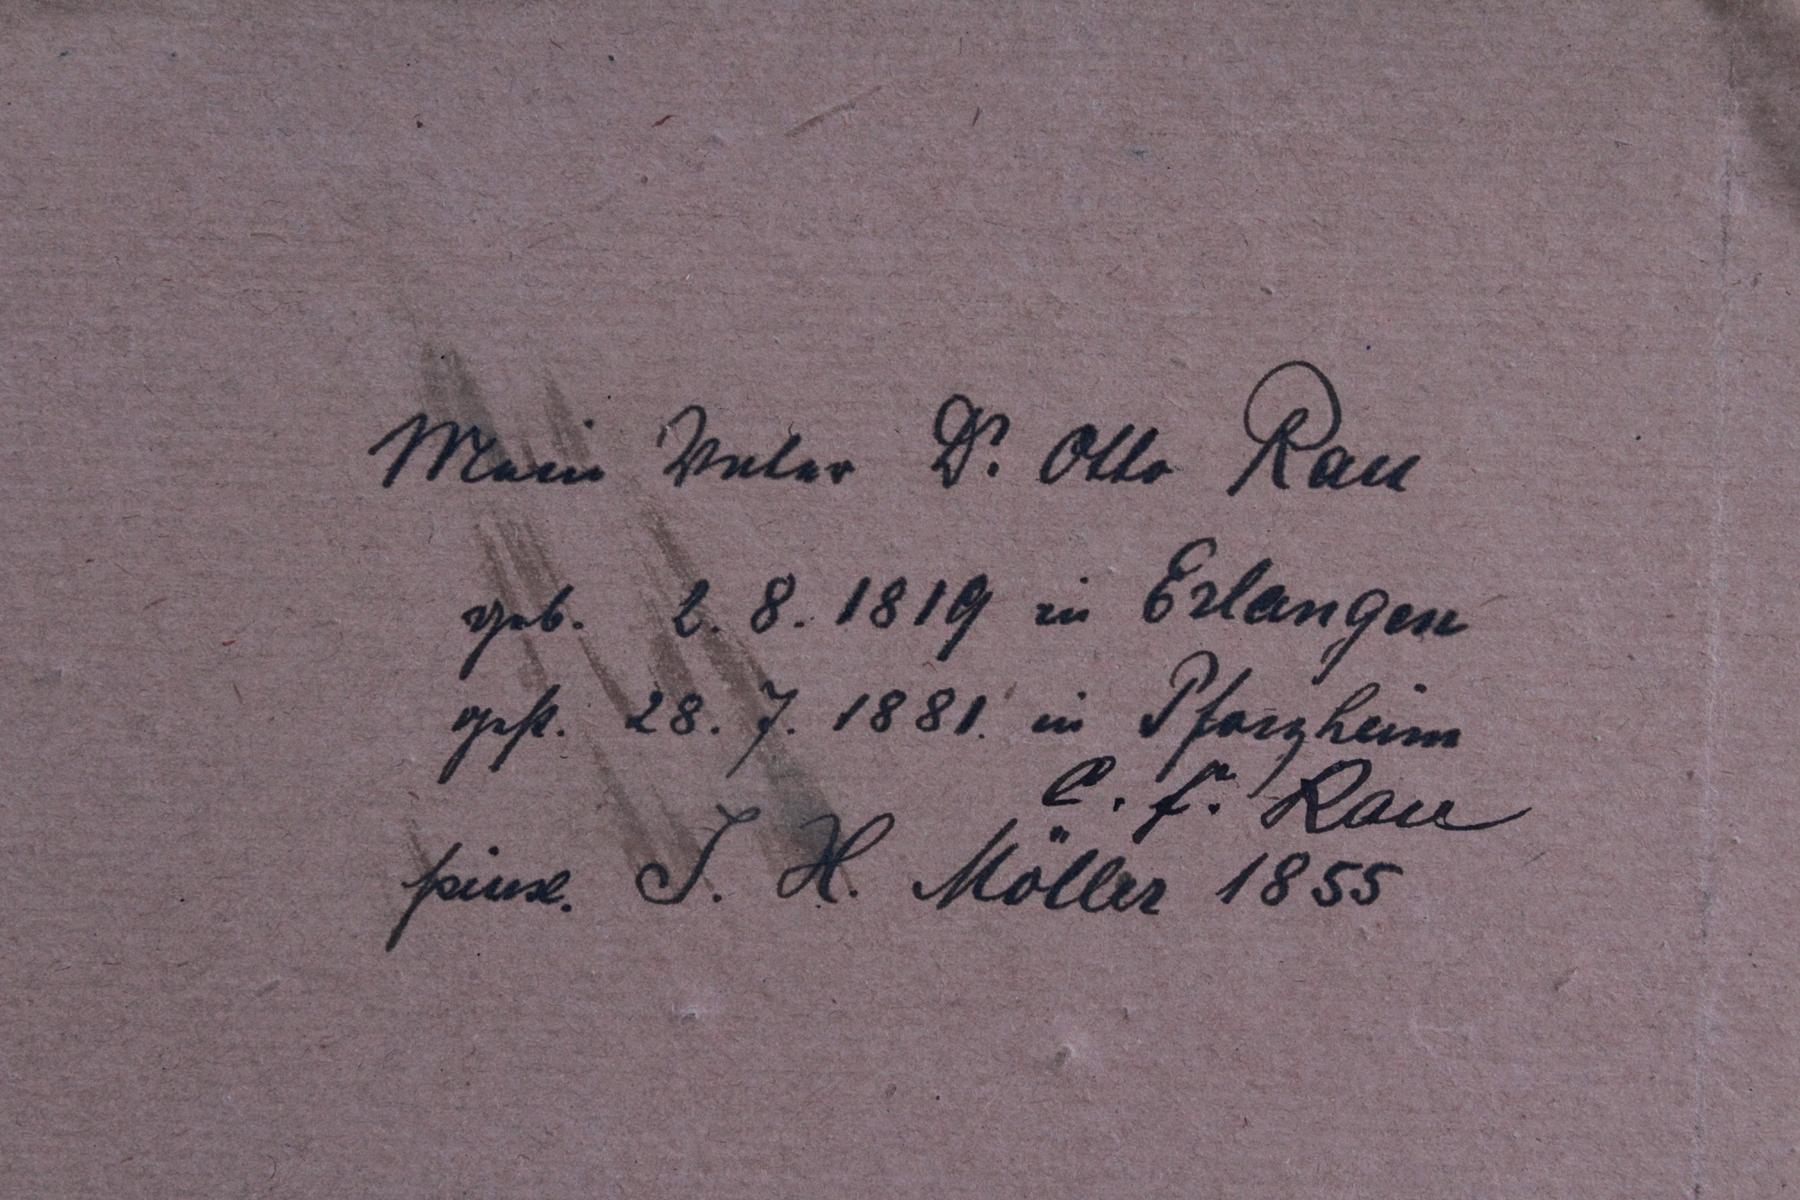 Mein Vater Dr. Otto Rau
geb. 2. 8. 1819 in Erlangen
gest. 28. 7. 1881. in Pforzheim
C. F. Rau
pinx. J. H. Möller 1855